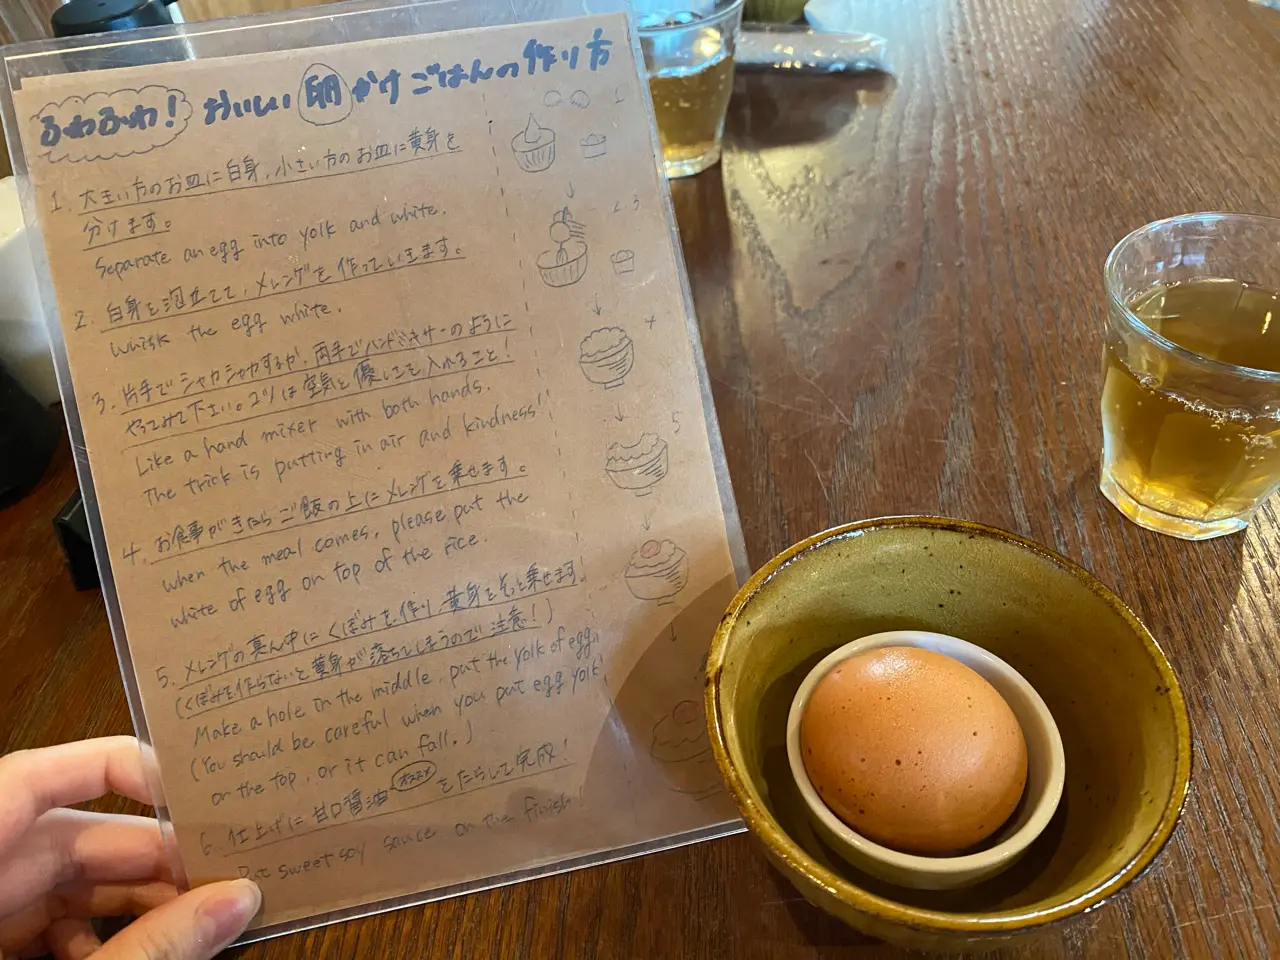 ふわふわ! おいしい 卵 かけごはんの作り方
1. 大きい方のお皿に白身、小さい方のお皿に黄身を
分けます。
Separate an egg into yolk and white.
2. 白身を泡立てて、メレンゲを作っていきます。
whisk the egg white.
3. 片手でシャカシャカするか、両手でハンドミキサーのように
やってみて下さい。コツは空気と優しさを入れること!
Like a hand mixer with both hands.
The trick is putting in air and kindness!!
4. お食事がきたらご飯の上にメレンゲを乗せます。
when the meal comes, please put the
white of egg on top of the rice.
5. メレンゲの真ん中にくぼみを作り 黄身をそっと乗せます!
(くぼみを作らないと黄身が落ちてしまうので注意!)
Make a hole in the middle, put the yolk of egg.
(You should be careful when you put egg yolk
on the top, or it can fall.)
6. 仕上げに 甘口醤油 オススメ をたらして完成!
Put sweet soy sauce on the finish!
1
2.3
4
5